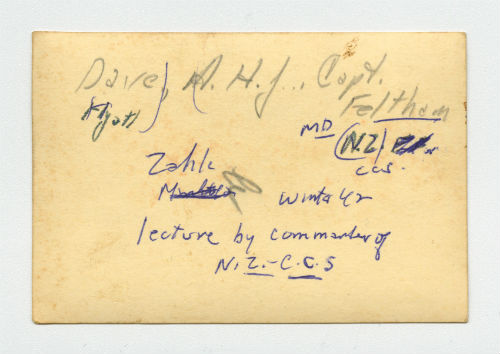 Dave, A. H. J., Capt.
Feltham
MD
(N.Z)
C C S.
Zahle
Winter 42
lecture by commander of
N. Z. - C. C. S